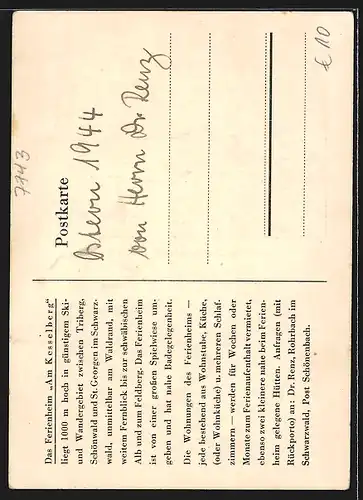 Das Ferienheim „Am Kesselberg“
liegt 1000 m hoch in günstigem Ski-
und Wandergebiet zwischen Triberg,
Schönwald und St. Georgen im Schwarz-
wald, unmittelbar am Waldrand, mit
weitem Fernblick bis zur schwäbischen
Alb und zum Feldberg. Das Ferienheim
ist von einer großen Spielwiese um-
geben und hat nahe Badegelegenheit.
Die Wohnungen des Ferienheims —
jede bestehend aus Wohnstube, Küche,
(oder Wohnküche) u. mehreren Schlaf-
zimmern — werden für Wochen oder
Monate zum Ferienaufenthalt vermietet,
ebenso zwei kleinere nahe beim Ferien-
heim gelegene Hütten. Anfragen (mit
Rückporto) an: Dr. Renz, Rohrbach im
Schwarzwald, Post Schönenbach.
Postkarte
Ostern 1944
von Herrn Dr. Renz
7743
€ 10